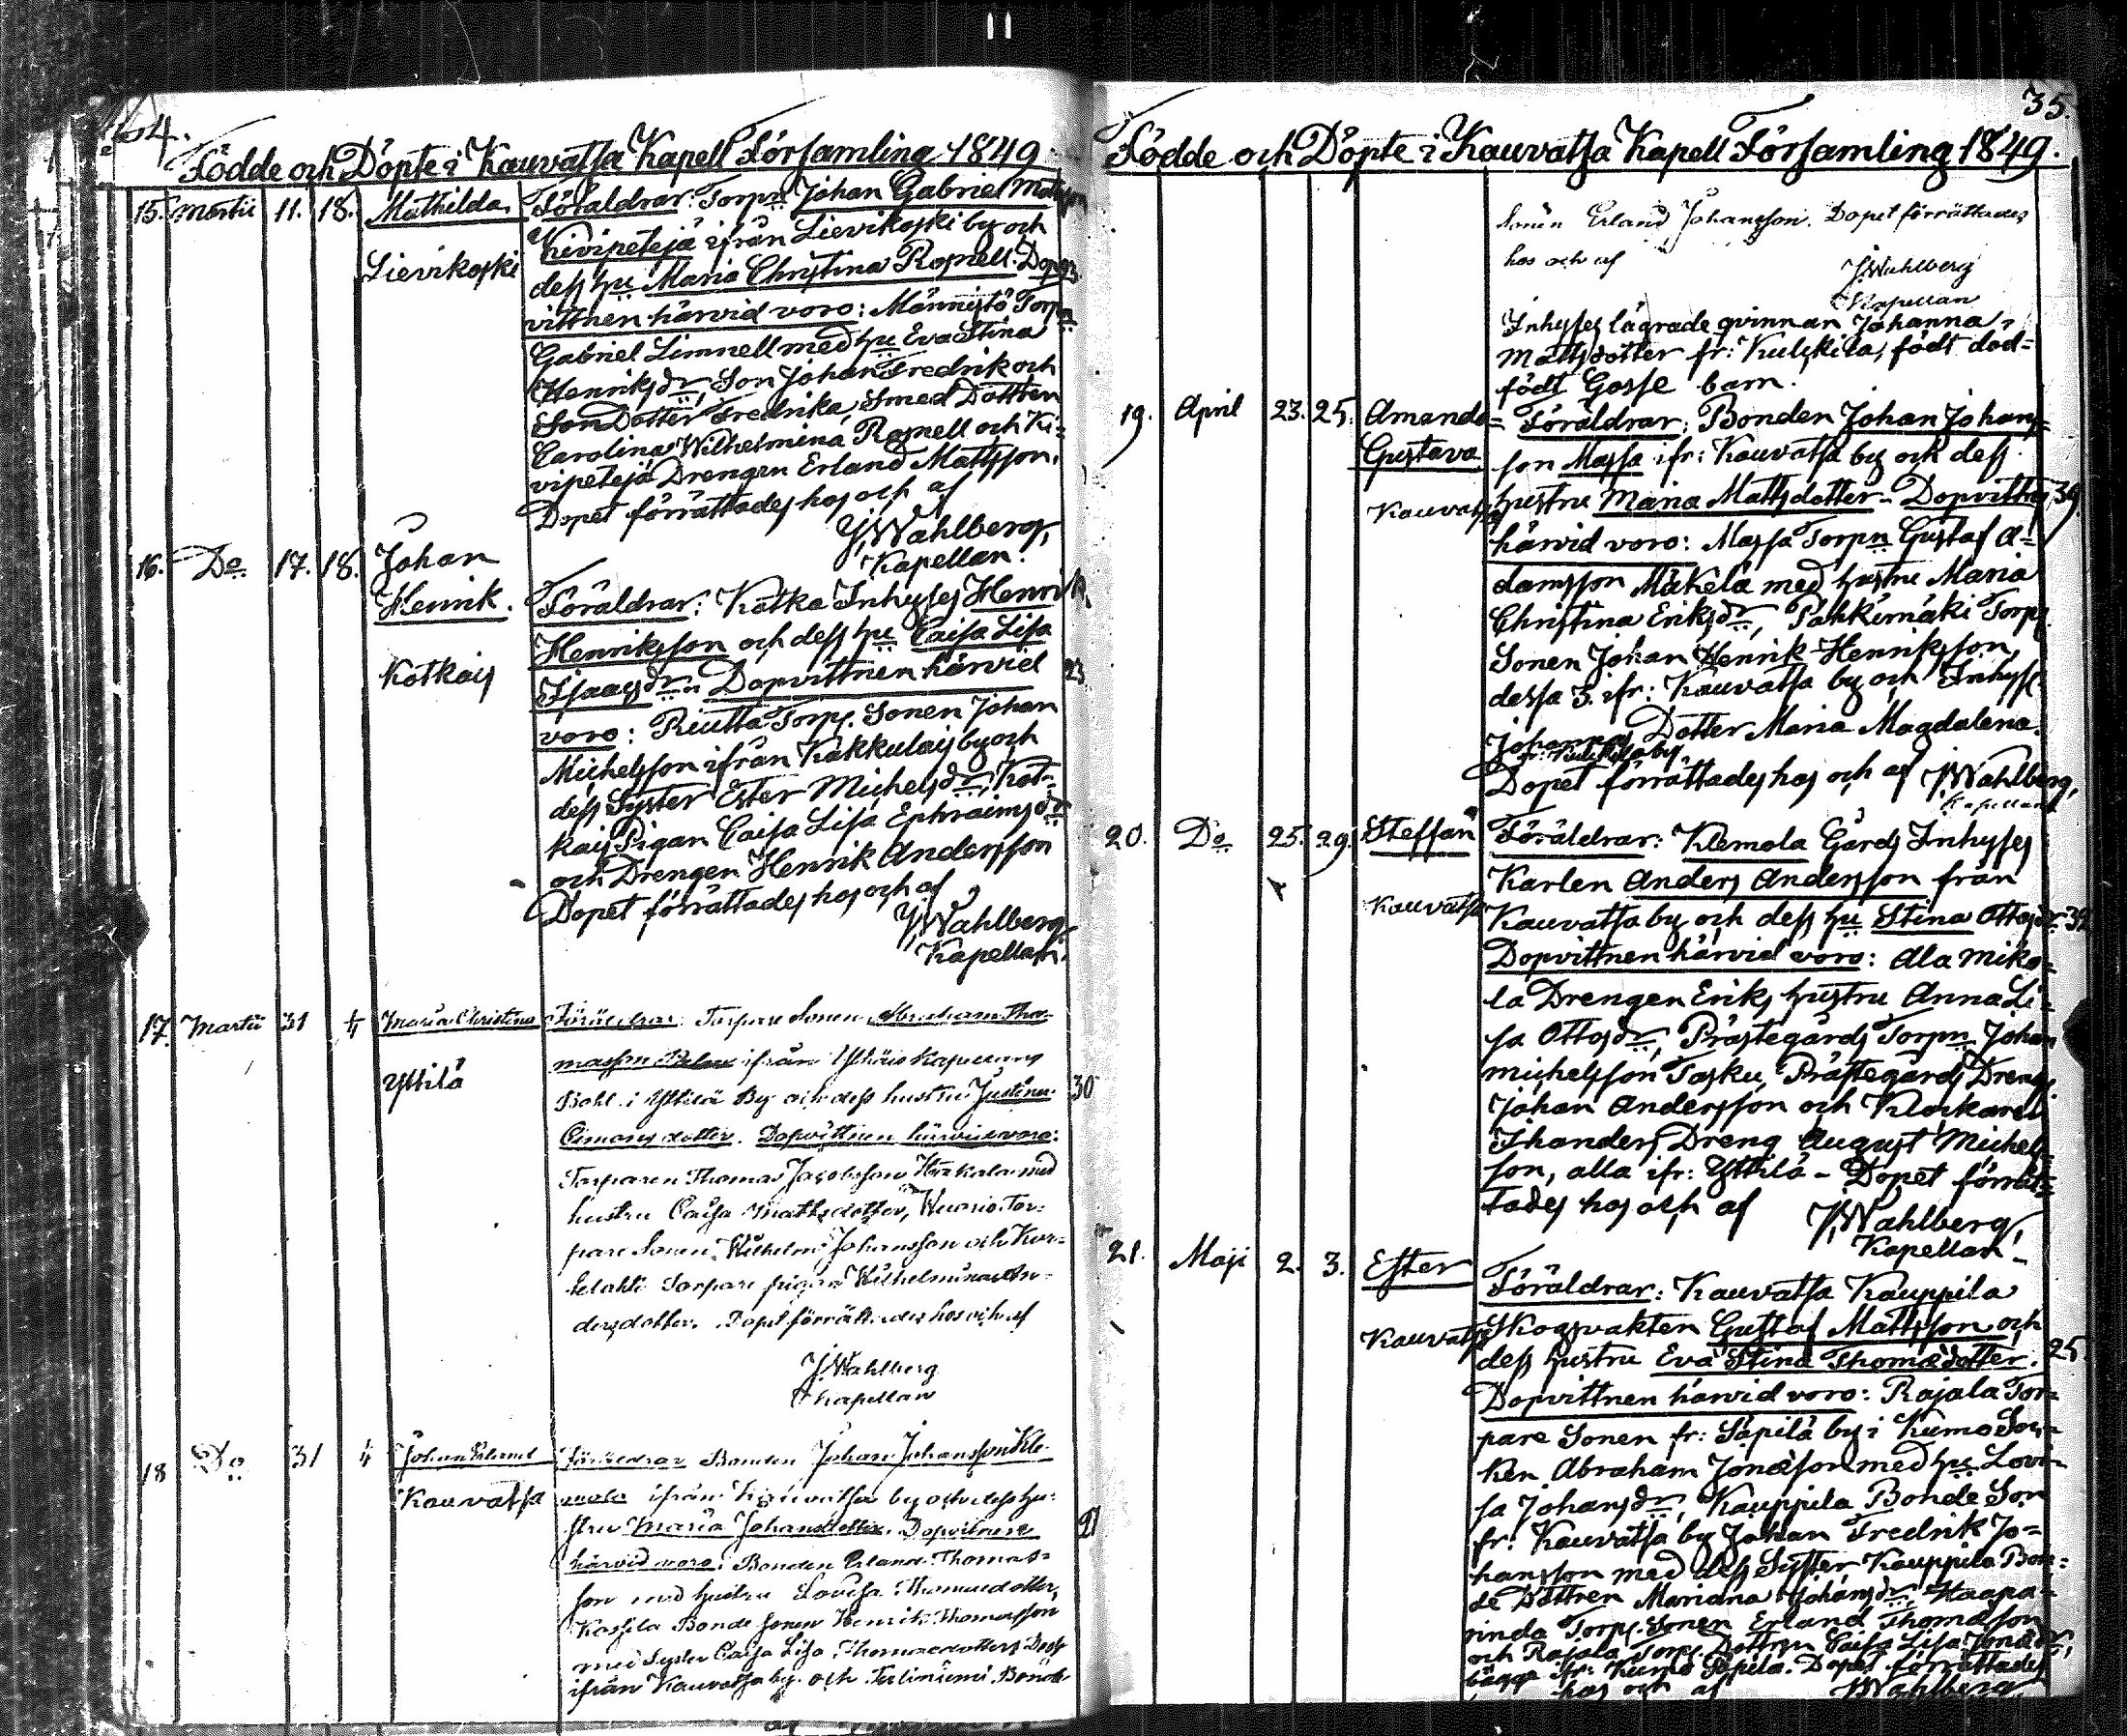 11
34.
Födde och Döpte i Kauvatsa Kapell Församling 1849
15. Martii 11. 18. Mathilda. Föräldrar: Torpn Johan Gabriel Matsson
Kivipetejä ifrån Lievikoski by och
Lievikoski dess hu Maria Christina Rosnell. Dop= 23.
vittnen härvid voro: Männistö Torpn
Gabriel Limnell med hu Eva Stina
Henriksdr, Son Johan Fredrik och
Son Dotter Fredrika, Smed Dottren
Carolina Wilhelmina Rosnell och Ki=
vipetejä Drengen Erland Mattsson.
Dopet förrättades hos och af
J. Wahlberg,
Kapellan.
16. Do 17. 18. Johan
Henrik. Föräldrar: Kotka Inhyses Henrik
Henriksson och dess hu Caisa Lisa
Kotkais Isaacsdr. Dopvittnen härvid 23
voro: Riutta Torp. Sonen Johan
Michelsson ifrån Kakkulais by och
dess Syster Ester Michelsdr, Kot=
kais Pigan Caisa Lisa Ephraimsdr
och Drengen Henrik Andersson
Dopet förrättades hos och af
J. Wahlberg
Kapellan.
17. Martii 31 1/4 Maria Christina Föräldrar: Torpare Sonen Abraham Tho=
masson ifrån Kapellans
Yttilä Bohl i Yttilä By och dess hustru Justina 30
Simonsdotter. Dopvittnen härvid voro:
Torparen Thomas Jacobsson med
hustru Caisa Mattsdotter, Tor=
pare Sonen Wilhelm Johansson och
Torpare pigan Wilhelmina An=
dersdotter. Dopet förrättades hos och af
J. Wahlberg
Kapellan
18 Do 31 1/4 Johan Erland Föräldrar Bonden Johan Johansson Kle=
Kauvatsa mola ifrån Kauvatsa by och dess hu=
stru Maria Johansdotter. Dopvittnen 21
härvid voro: Bonden Erland Thomas=
son med hustru Lovisa Thomasdotter,
Kassila Bonde Sonen Henrik Thomasson
med Syster Caisa Lisa Thomasdotter
ifrån Kauvatsa by och Taliniemi Bonde
35.
Födde och Döpte i Kauvatsa Kapell Församling 1849.
Sonen Erland Johansson. Dopet förrättades
hos och af
J. Wahlberg
Kapellan
Inhyses lägrade qvinnan Johanna
Mattsdotter fr: Kulkkila, födt död=
födt Gosse barn.
19. April 23. 25. Amanda Föräldrar: Bonden Johan Johans=
Gustava son Massa ifr: Kauvatsa by och dess
Kauvatsa hustru Maria Mattsdotter - Dopvittnen 39.
härvid voro: Massa Torpn Gustaf A=
damsson Mäkelä med hustru Maria
Christina Eriksdr, Pahkimäki Torp.
Sonen Johan Henrik Henriksson,
dessa 3. ifr: Kauvatsa by och Inhyses
Johannas Dotter Maria Magdalena.
Dopet förrättades hos och af J. Wahlberg,
Kapellan
20. Do 25. 29. Steffan Föräldrar: Klemola Gårds Inhyses
Karlen Anders Andersson från
Kauvatsa Kauvatsa by och dess hu Stina Ottosdr
Dopvittnen härvid voro: Ala Miko=
la Drengen Eriks hustru Anna Li=
sa Ottosdr, Prästegårds Torpn Johan
Michelsson Tasku, Prästegårds Dreng
Johan Andersson och Klockaren
Ihanders Dreng August Michels=
son, alla ifr: Yttilä - Dopet förrät=
tades hos och af J. Wahlberg,
Kapellan
21. Maji 2. 3. Ester
Föräldrar: Kauvatsa Kauppila
Kauvatsa Skogsvakten Gustaf Mattsson och
dess hustru Eva Stina Thomædotter. 25.
Dopvittnen härvid voro: Rajala Tor=
pare Sonen fr: Säpilä by i Kumo Soc=
ken Abraham Jonæson med hu Lovi=
sa Johansdr, Kauppila Bonde Son
fr: Kauvatsa by Johan Fredrik Jo=
hansson med dess Syster Kauppila Bon=
de Dottren Mariana Johansdr, Haapa=
rinda Torp. Sonen Erland Thomæson
och Rajala Torp. Dottren Caisa Lisa Jonædr,
bägge ifr: Kumo Säpilä. Dopet förrättades
hos och af J. Wahlberg